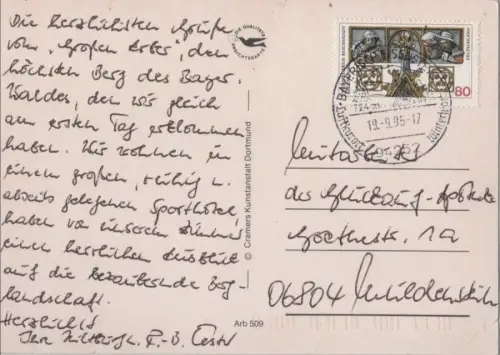 Die herzlichsten Grüße
vom "Großen Arber", dem
höchsten Berg des Bayer.
Waldes, den wir gleich
am ersten Tag erklommen
haben. Wir wohnen in
einem großen, ruhig u.
abseits gelegenen Sporthotel,
haben von unserem Zimmer
einen herrlichen Ausblick
auf die bezaubernde Berg-
landschaft.
Herzlichst
Ihr
© Cramers Kunstanstalt Dortmund
Arb 509
DEUTSCHLAND
80
19.-9.95-17
94252
der Glückauf-Apotheke
Goethestr. 1a
06804 Muldenstein